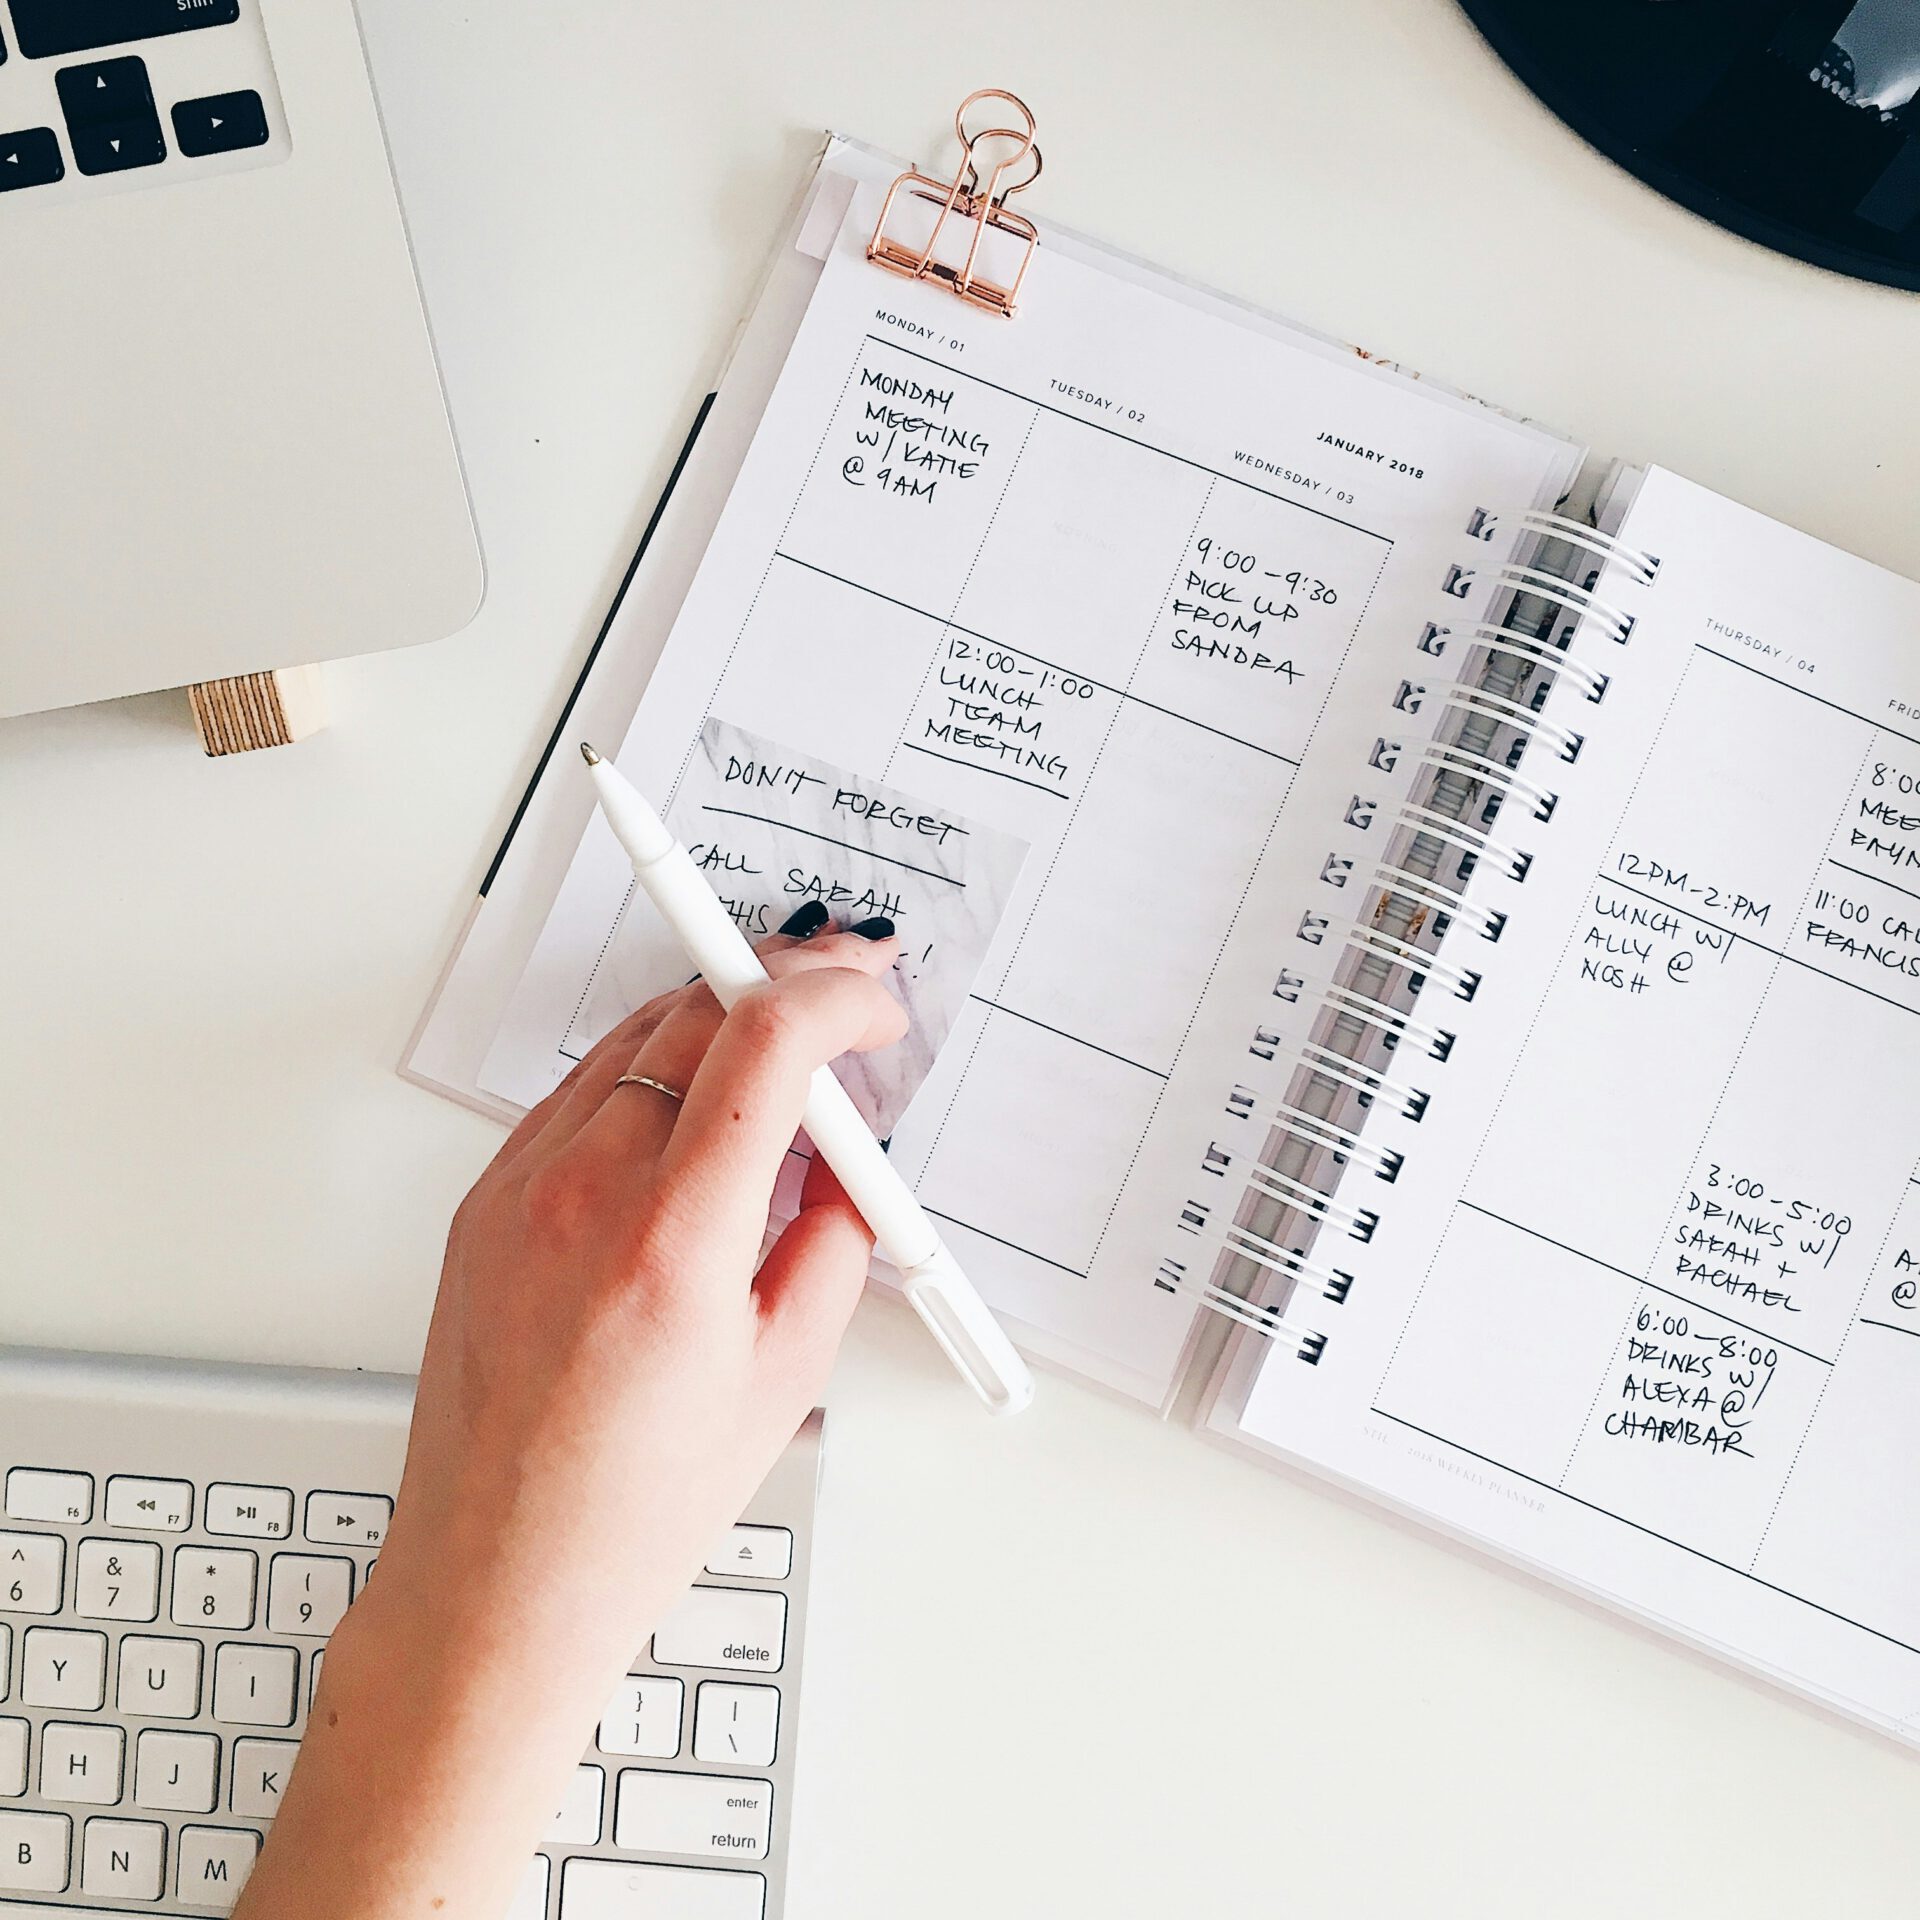 shift
MONDAY / 01
MONDAY
MEETING
W/ KATIE
@ 9AM
TUESDAY / 02
12:00-1:00
LUNCH
TEAM
MEETING
JANUARY 2018
WEDNESDAY / 03
9:00-9:30
PICK UP
FROM
SANDRA
DON'T FORGET
CALL SARAH
THURSDAY / 04
12PM-2:PM
LUNCH W/
ALLY @
NOSH
8:00
11:00
FRANCIS
3:00-5:00
DRINKS W/
SARAH +
RACHAEL
6:00-8:00
DRINKS W/
ALEXA @
CHAMBAR
@
2018 WEEKLY PLANNER
F6 F7 F8 F9
^ & * (
6 7 8 9
delete
Y U I } |
] \
H J K enter
return
B N M